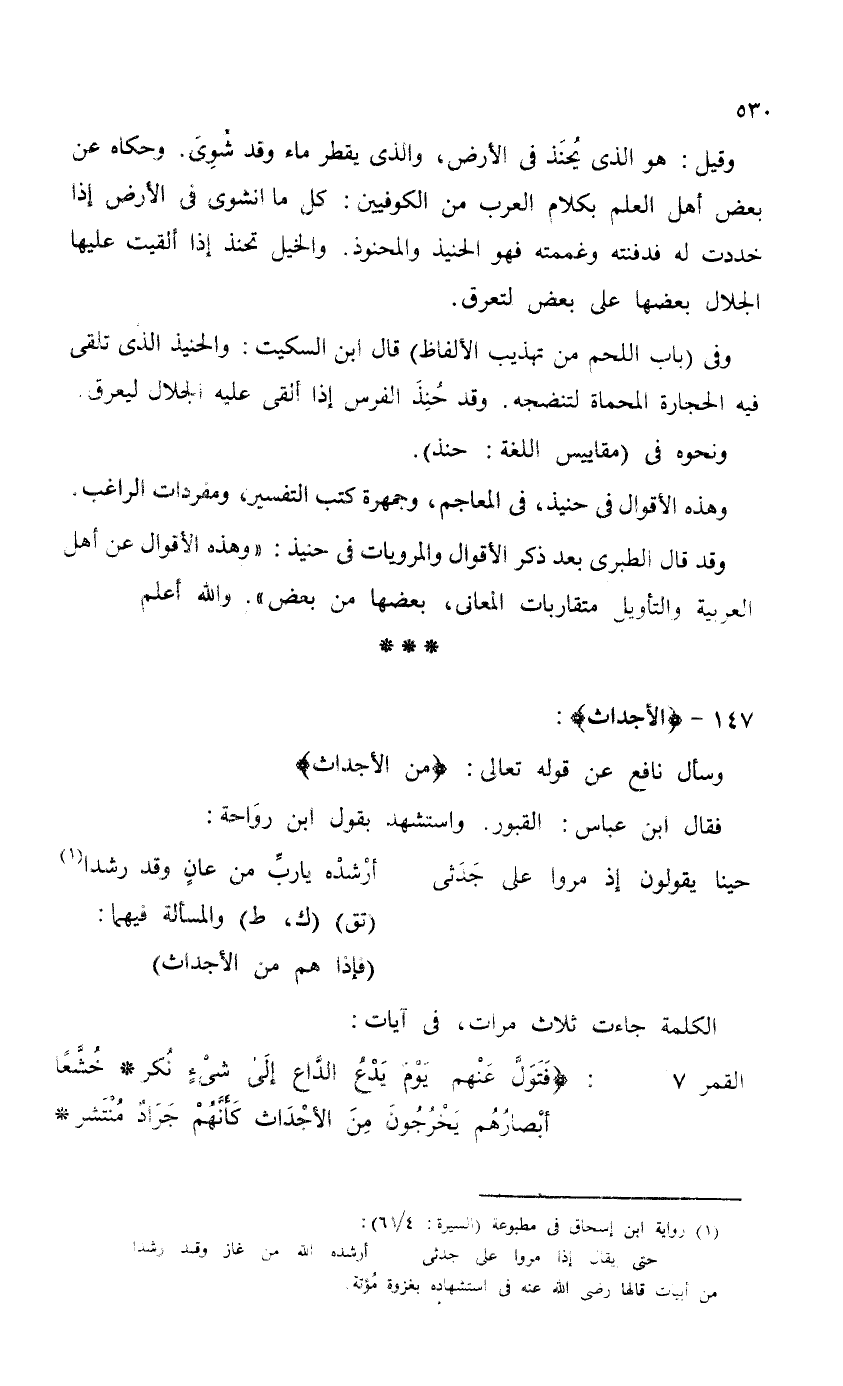 ٥٣٠
وقيل : هو الذى يُحنَذ فى الأرض، والذى يقطر ماء وقد شُوِىَ. وحكاه عن
بعض أهل العلم بكلام العرب من الكوفيين : كل ما انشوى فى الأرض إذا
خددت له فدفنته وغممته فهو الحنيذ والمحنوذ. والخيل تحنذ إذا ألقيت عليها
الجلال بعضها على بعض لتعرق.
وفى (باب اللحم من تهذيب الألفاظ) قال ابن السكيت : والحنيذ الذى تلقى
فيه الحجارة المحماة لتنضجه. وقد حُنِذَ الفرس إذا ألقى عليه الجلال ليعرق.
ونحوه فى (مقاييس اللغة : حنذ).
وهذه الأقوال فى حنيذ، فى المعاجم، وجمهرة كتب التفسير، ومفردات الراغب.
وقد قال الطبرى بعد ذكر الأقوال والمرويات فى حنيذ : «وهذه الأقوال عن أهل
العربية والتأويل متقاربات المعانى، بعضها من بعض». والله أعلم
* * *
١٤٧ - ﴿الأجداث﴾ :
وسأل نافع عن قوله تعالى : ﴿من الأجداث﴾
فقال ابن عباس : القبور. واستشهد بقول ابن روَاحة :
حينا يقولون إذ مروا على جَدَثى أرْشدْه ياربِّ من عانٍ وقد رشدا(١)
(تق) (ك، ط) والمسألة فيهما :
(فإذا هم من الأجداث)
الكلمة جاءت ثلاث مرات، فى آيات :
القمر ٧ : ﴿فَتَوَلَّ عَنْهم يَوْمَ يَدْعُ الدَّاعِ إلَىٰ شىْءٍ نُكر * خُشَّعًا
أبْصارُهُم يَخْرُجُونَ مِنَ الأجْدَاث كَأَنَّهُمْ جَرَادٌ مُنْتَشر *
(١) رواية ابن إسحاق فى مطبوعة (السيرة : ٦١/٤) :
حتى يقال إذا مروا على جدثى أرشده الله من غاز وقد رشدا
من أبيات قالها رضى الله عنه فى استشهاده بغزوة مُؤتة.